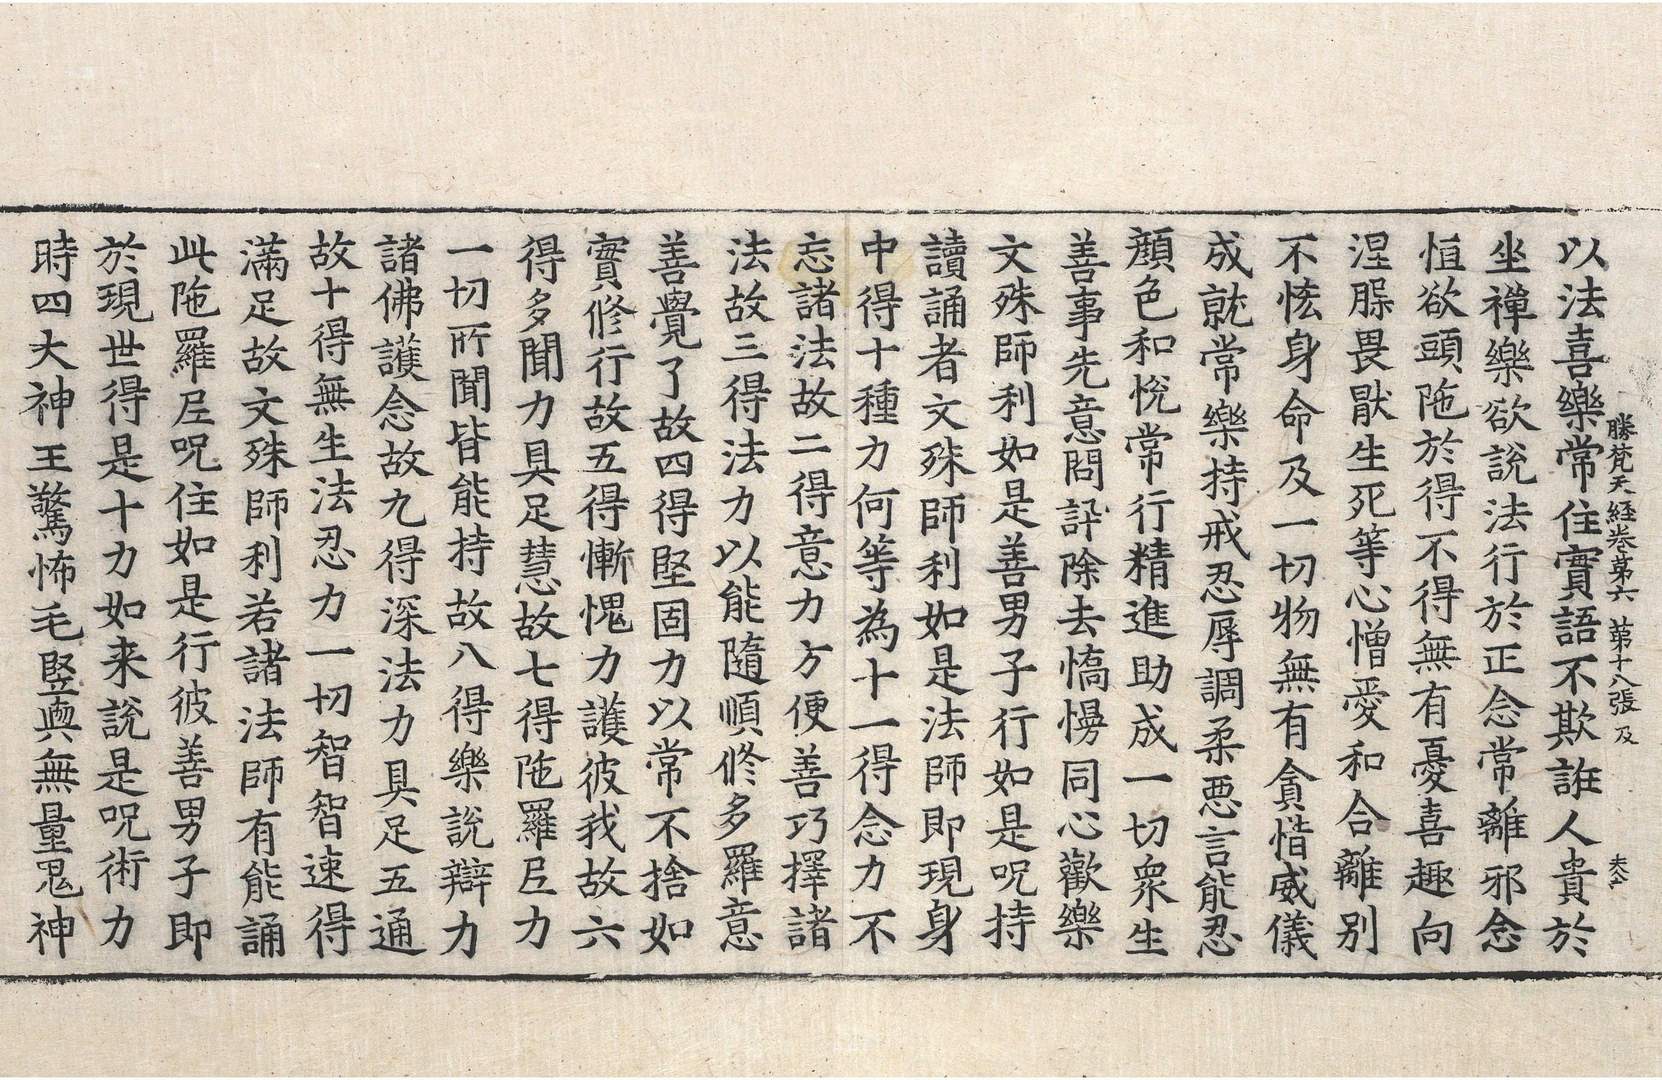 勝梵天経卷第六 第十八張 及
以法喜樂常住實語不欺誑人貴於
坐禪樂欲說法行於正念常離邪念
恒欲頭陁於得不得無有憂喜趣向
涅槃畏猒生死等心憎愛和合離別
不悋身命及一切物無有貪惜威儀
成就常樂持戒忍辱調柔惡言能忍
顏色和悅常行精進助成一切衆生
善事先意問訊除去憍慢同心歡樂
文殊師利如是善男子行如是呪持
讀誦者文殊師利如是法師即現身
中得十種力何等為十一得念力不
忘諸法故二得意力方便善巧擇諸
法故三得法力以能隨順修多羅意
善覺了故四得堅固力以常不捨如
實修行故五得慚愧力護彼我故六
得多聞力具足慧故七得陁羅𡰱力
一切所聞皆能持故八得樂說辯力
諸佛護念故九得深法力具足五通
故十得無生法忍力一切智智速得
滿足故文殊師利若諸法師有能誦
此陁羅𡰱呪住如是行彼善男子即
於現世得是十力如来說是呪術力
時四大神王驚怖毛竪與無量鬼神